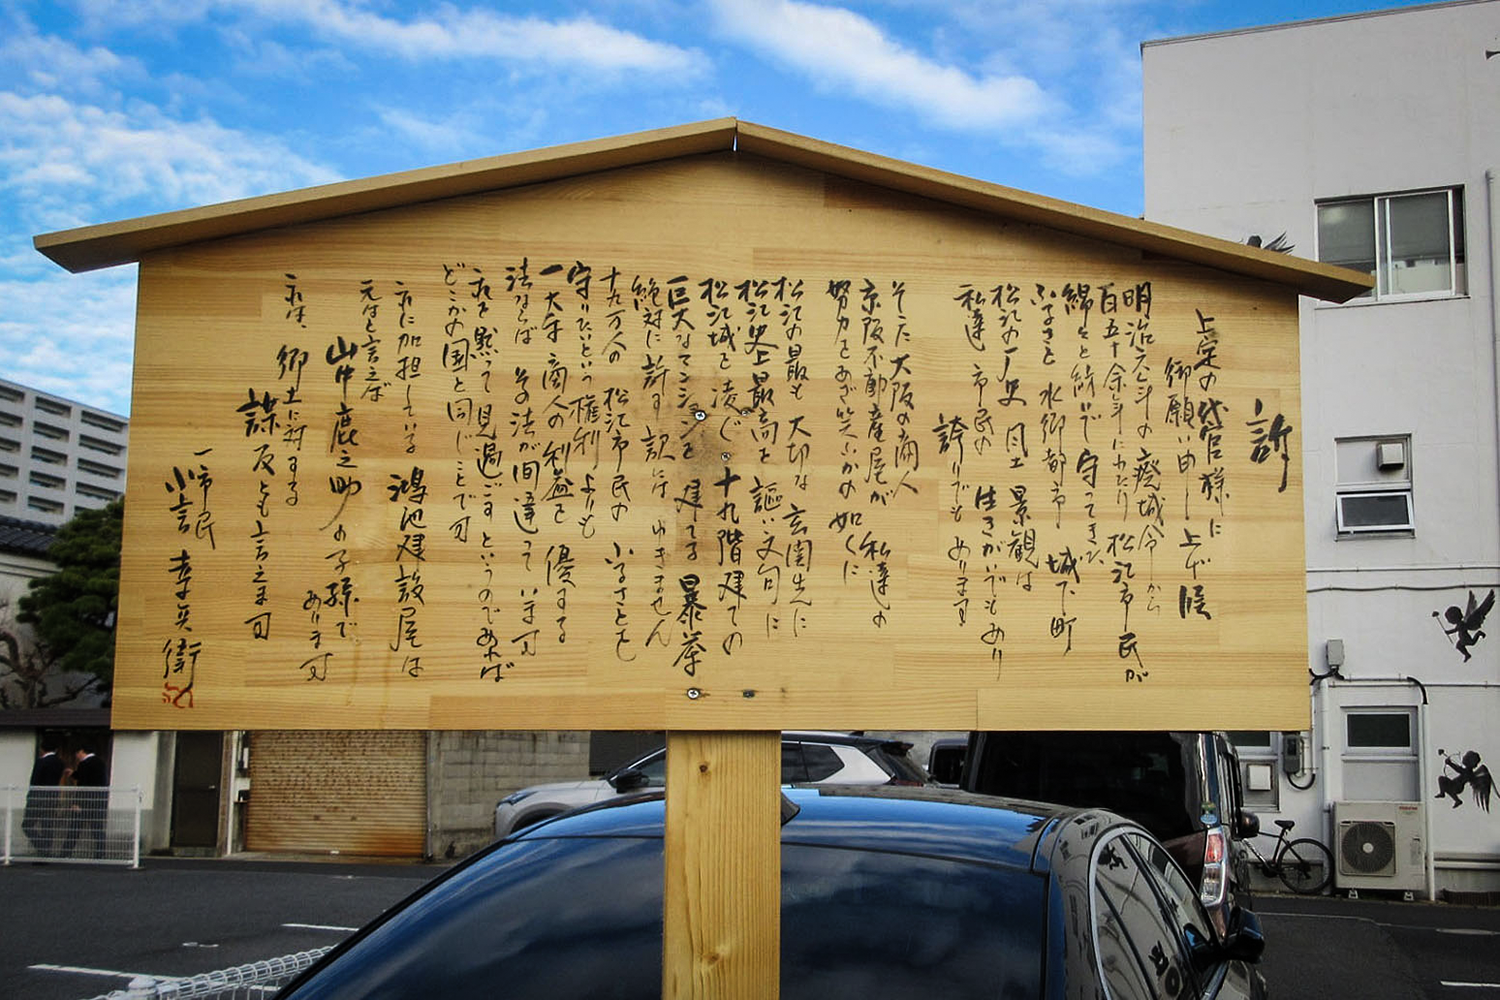 訴
上定の代官様に
御願い申し上げ候
明治六年の廃城令から
百五十余年にわたり松江市民が
綿々と紡いで守ってきた
ふるさと水郷都市城下町
松江の歴史風土景観は
私達市民の生きがいでもあり
誇りでもあります
そこに大阪の商人
京阪不動産屋が私達の
努力をあざ笑うかの如くに
松江の最も大切な玄関先に
松江史上最高を謳い文句に
松江城を凌ぐ十九階建ての
巨大なマンションを建てる暴挙
絶対に許す訳にはゆきません
十九万人の松江市民のふるさとを
守りたいという権利よりも
一大阪商人の利益を優する
法ならばその法が間違っています
これを黙って見過ごすというのであれば
どこかの国と同じことです
これに加担している鴻池建設屋は
元はと言えば
山中鹿之助の子孫で
あります
これは、郷土に対する
謀反とも言えます
一市民
小言幸兵衛